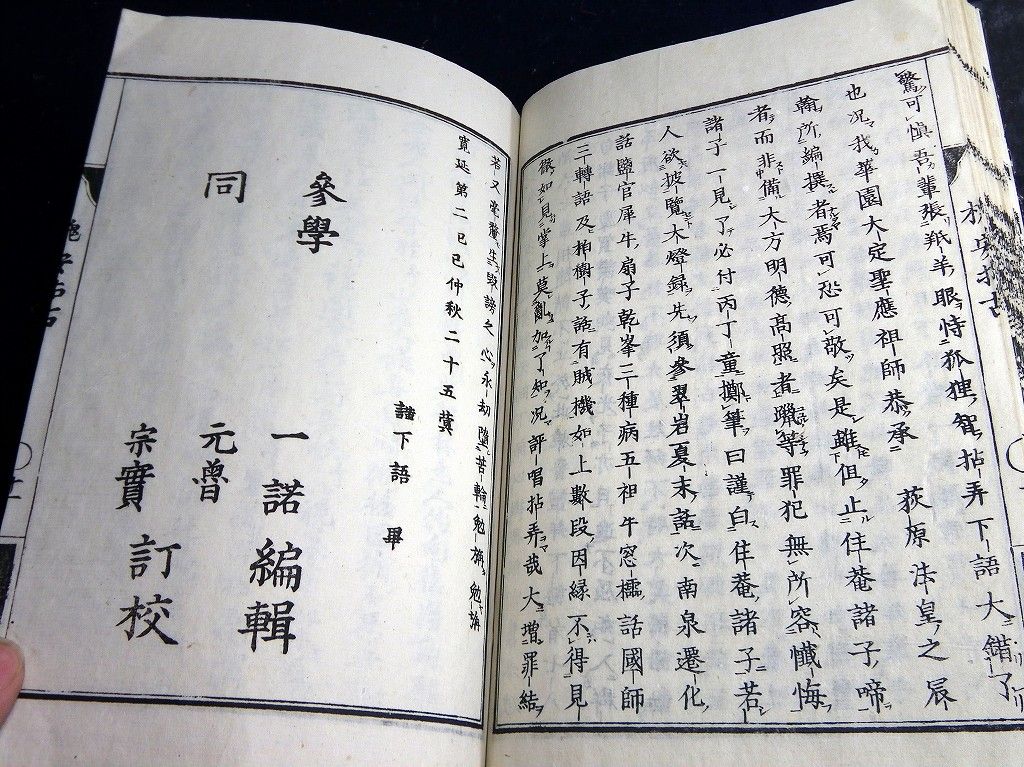 驚可愼吾輩張羝羊眼恃狐狸智拈弄下語大錯了
也況我華園大定聖應祖師恭承 萩原法皇之宸
翰所編撰者焉可恐可敬矣是雖但止住菴諸子啼
者而非備大方明德高照者躐等罪犯無所容懺悔
諸子一見了必付丙丁童擲筆曰謹白住菴諸子若
人欲披覽大燈錄先須參翠岩夏末話次南泉遷化
話鹽官犀牛扇子乾峯三種病五祖牛窓櫺話國師
三轉語及柏樹子話有賊機如上數段因緣不得見
徹如見掌上莫亂加了知況評唱拈弄哉大增罪結
若又毫釐生毀謗之心永劫墮苦輪勉旃勉旃
寛延第二己巳仲秋二十五蓂
下語 畢
參學 一諾編輯
同 元曾
宗實訂校